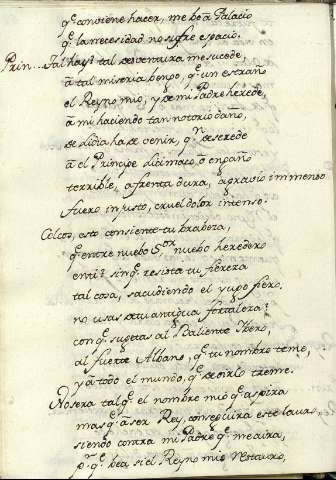 q̃ conviene hacer, me bẽ a Palacio
q̃ la necesidad no sufre espacio.
Prin... Tal hay? tal desventura me sucede,
a tal miseria bengo, q̃ un estraño
el Reyno mio, y de mi Padre herede,
a mi haciendo tan notorio daño,
de Lidia ha de venir, qn̄ deserede
a el Principe
terrible, afrenta dura, agravio immenso
fuero injusto, cruel dolor intenso.
Colcos, esto consiente tu brabeza,
q̃ entre nuebo Sor, nuebo heredero
en ti? sin q̃ resista tu fiereza
tal cosa, sacudiendo el yugo fiero.
no usas de tu antigua fortaleza?
con q̃ sugetas al Baliente Ibero,
al fuerte Albano, q̃ tu nombre teme,
y a todo el mundo, q̃ de oirlo treme.
No sera tal q̃ el nombre mio q̃ aspira
mas q̃ a ser Rey, conseguira este lauro
siendo contra mi Padre q̃ me aira,
p.q̃ bea si el Reyno mio restauro,